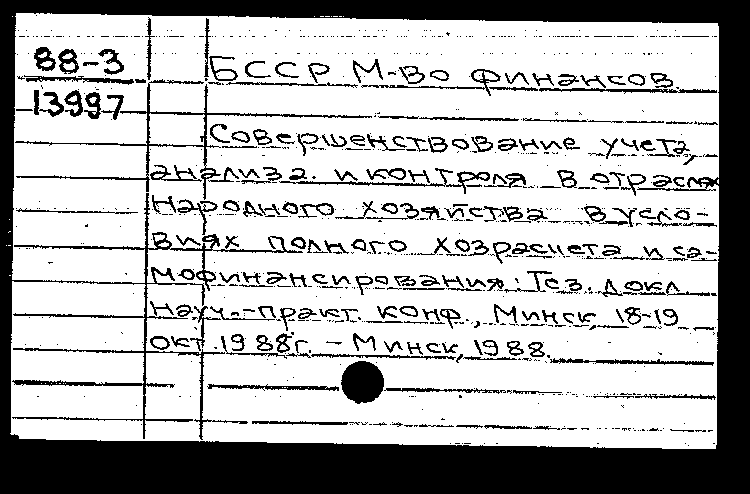 88-3
13997
БССР М-во финансов
Совершенствование учета,
анализа. и контроля в отраслях
народного хозяйства в усло-
виях полного хозрасчета и са-
мофинансирования: Тез. докл.
науч.-практ. конф., Минск, 18-19
окт. 1988г. - Минск, 1988.